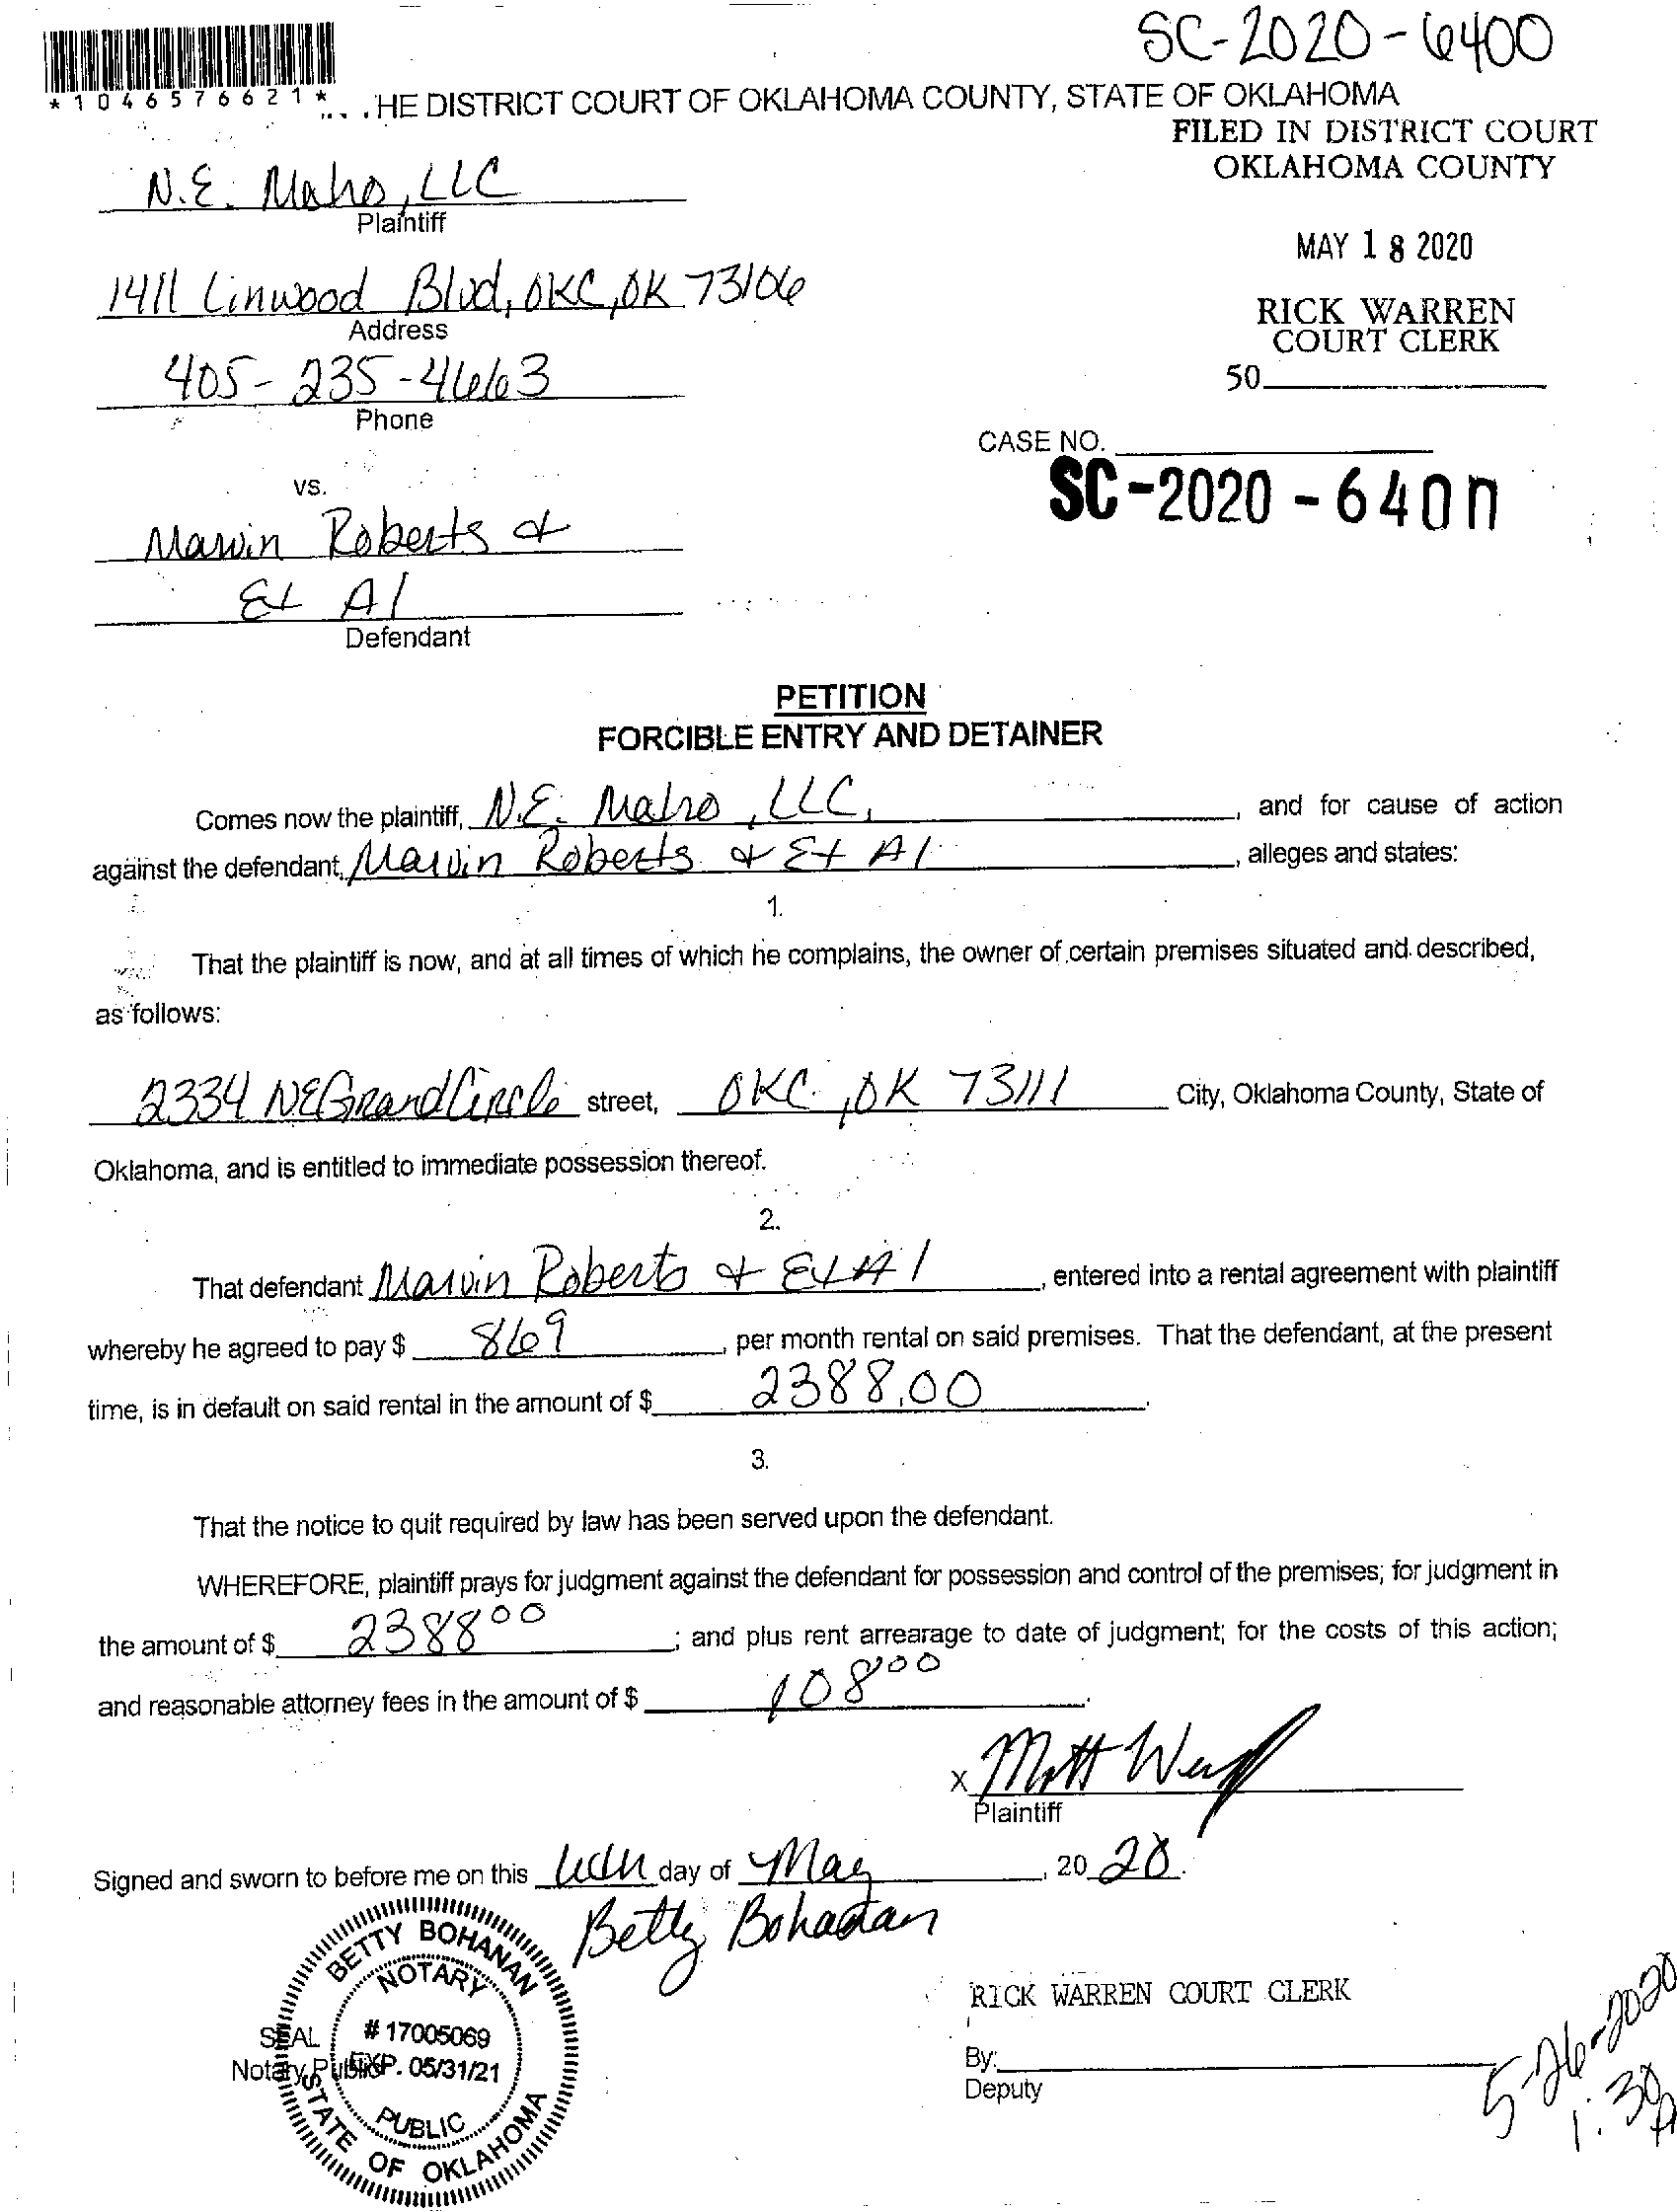 SC-2020-6400
*1046576621*
HE DISTRICT COURT OF OKLAHOMA COUNTY, STATE OF OKLAHOMA
FILED IN DISTRICT COURT
OKLAHOMA COUNTY
N.E. Mahro, LLC
Plaintiff
MAY 18 2020
1411 Linwood Blvd, OKC, OK 73106
Address
RICK WARREN
COURT CLERK
405-235-4663
Phone
50
CASE NO.
SC-2020-640
vs.
Marvin Roberts &
Et Al
Defendant
PETITION
FORCIBLE ENTRY AND DETAINER
Comes now the plaintiff, N.E. Mahro, LLC, , and for cause of action
against the defendant, Marvin Roberts & Et Al , alleges and states:
1.
That the plaintiff is now, and at all times of which he complains, the owner of certain premises situated and described,
as follows:
2334 NE Grand Circle street, OKC, OK 73111 City, Oklahoma County, State of
Oklahoma, and is entitled to immediate possession thereof.
2.
That defendant Marvin Roberts & Et Al , entered into a rental agreement with plaintiff
whereby he agreed to pay $ 869 , per month rental on said premises. That the defendant, at the present
time, is in default on said rental in the amount of $ 2388.00 .
3.
That the notice to quit required by law has been served upon the defendant.
WHEREFORE, plaintiff prays for judgment against the defendant for possession and control of the premises; for judgment in
the amount of $ 2388 00 ; and plus rent arrearage to date of judgment; for the costs of this action;
and reasonable attorney fees in the amount of $ 108 00 .
X Matt
Plaintiff
Signed and sworn to before me on this day of May , 20 20.
Betty Bohanan
BETTY BOHANAN
NOTARY
SEAL # 17005069
Notary Public EXP. 05/31/21
PUBLIC
STATE OF OKLAHOMA
RICK WARREN COURT CLERK
By:
Deputy
5-26-2020
1:30